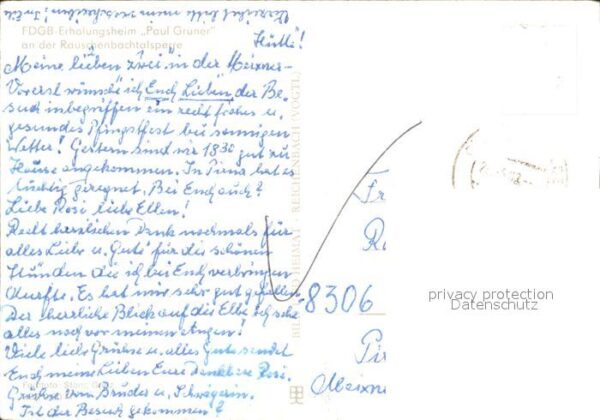 Verzeiht bitte mein verschreiben!
FDGB-Erholungsheim „Paul Gruner"
an der Rauschenbachtalsperre
Hütte!
Meine lieben zwei in der Meixner-
Vorerst wünsche ich Euch Lieben, der Be-
such inbegriffen ein recht frohes u.
gesundes Pfingstfest bei sonnigen
Wetter! Gestern sind wir 18 30 gut zu
Hause angekommen. In Pirna hat es
tüchtig geregnet. Bei Euch auch?
Liebe Rosi liebe Ellen!
Recht herzlichen Dank nochmals für
alles Liebe u. Gute für die schönen
Stunden die ich bei Euch verbringen
durfte. Es hat mir sehr gut gefallen
Der herrliche Blick auf die Elbe ich sehe
alles noch vor meinen Augen!
Viele liebe Grüsse u. alles Gute sendet
Euch meine Lieben Eure dankbare Rosi.
Grüsse vom Bruder u. Schwägerin.
Ist der Besuch gekommen?
BILD UND HEIMAT REICHENBACH (VOGTL)
Fr
R
8306
Pir
Meixne
privacy protection
Datenschutz